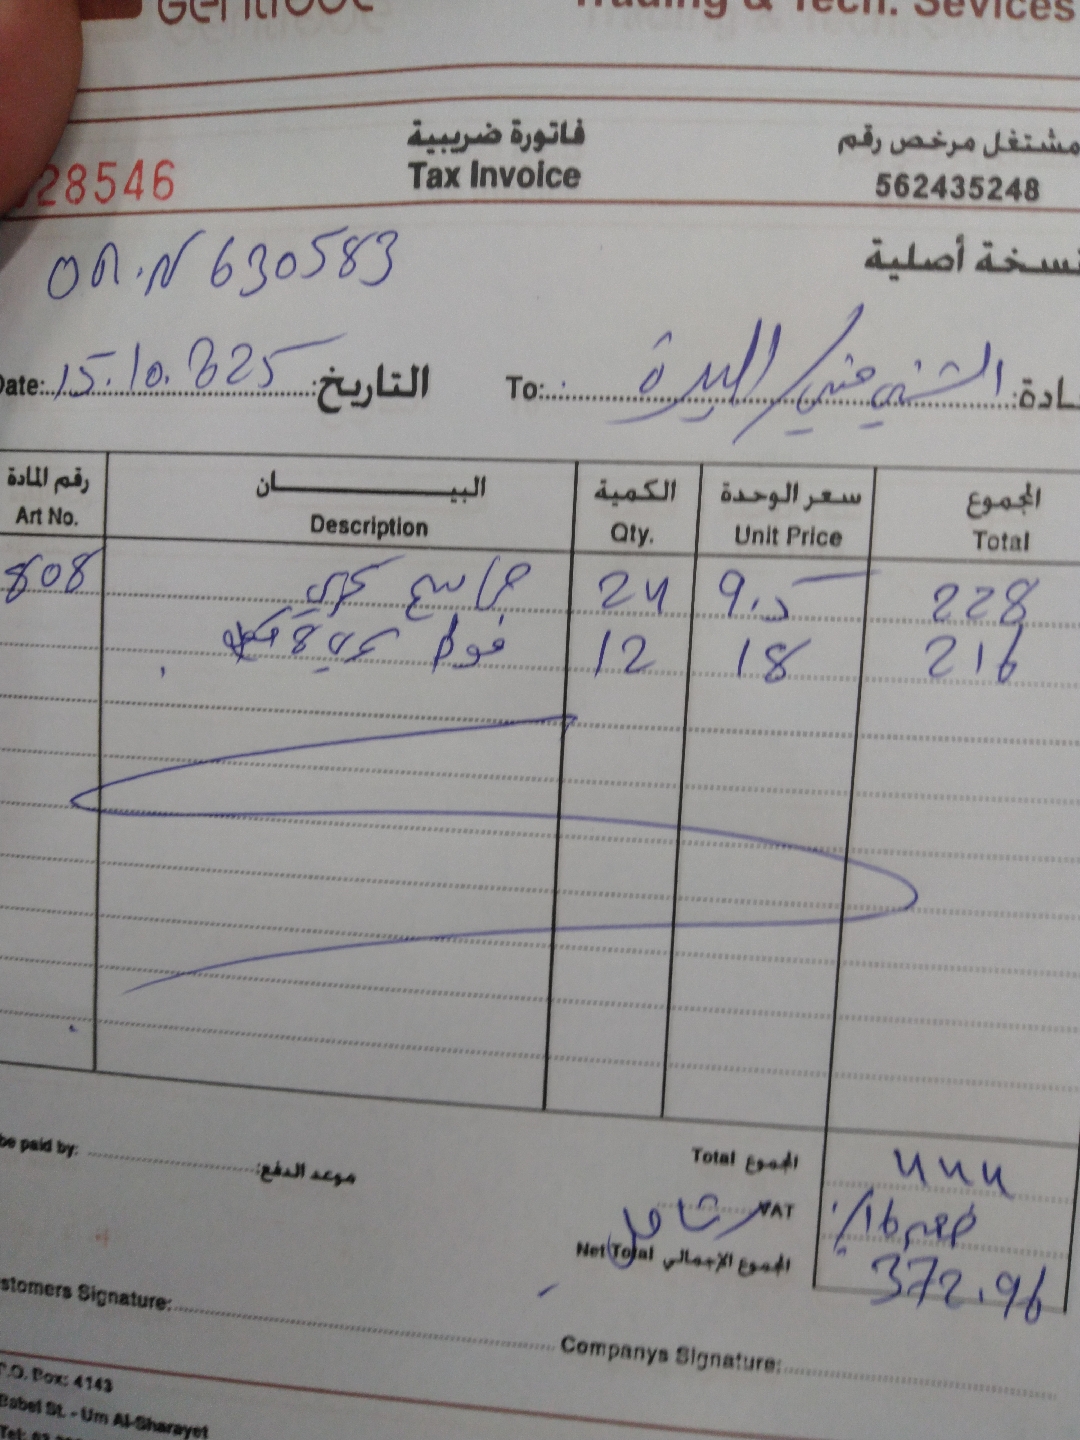 Trading & Tech. Sevices
فاتورة ضريبية
مشتغل مرخص رقم
28546
Tax Invoice
562435248
OR.N 630583
نسخة أصلية
Date: 15.10.2025 التاريخ:
To: الشني جنين / البيرة
رقم المادة البيــــــــان الكمية سعر الوحدة المجموع
Art No. Description Qty. Unit Price Total
808 24 9.5 228
12 18 216
be paid by: موعد الدفع:
Total المجموع 444
VAT شامل خصم 16%
Net Total المجموع الإجمالي 372.96
stomers Signature:
Companys Signature:
P.O. Box: 4143
Babel St. - Um Al-Sharayet
Tel: